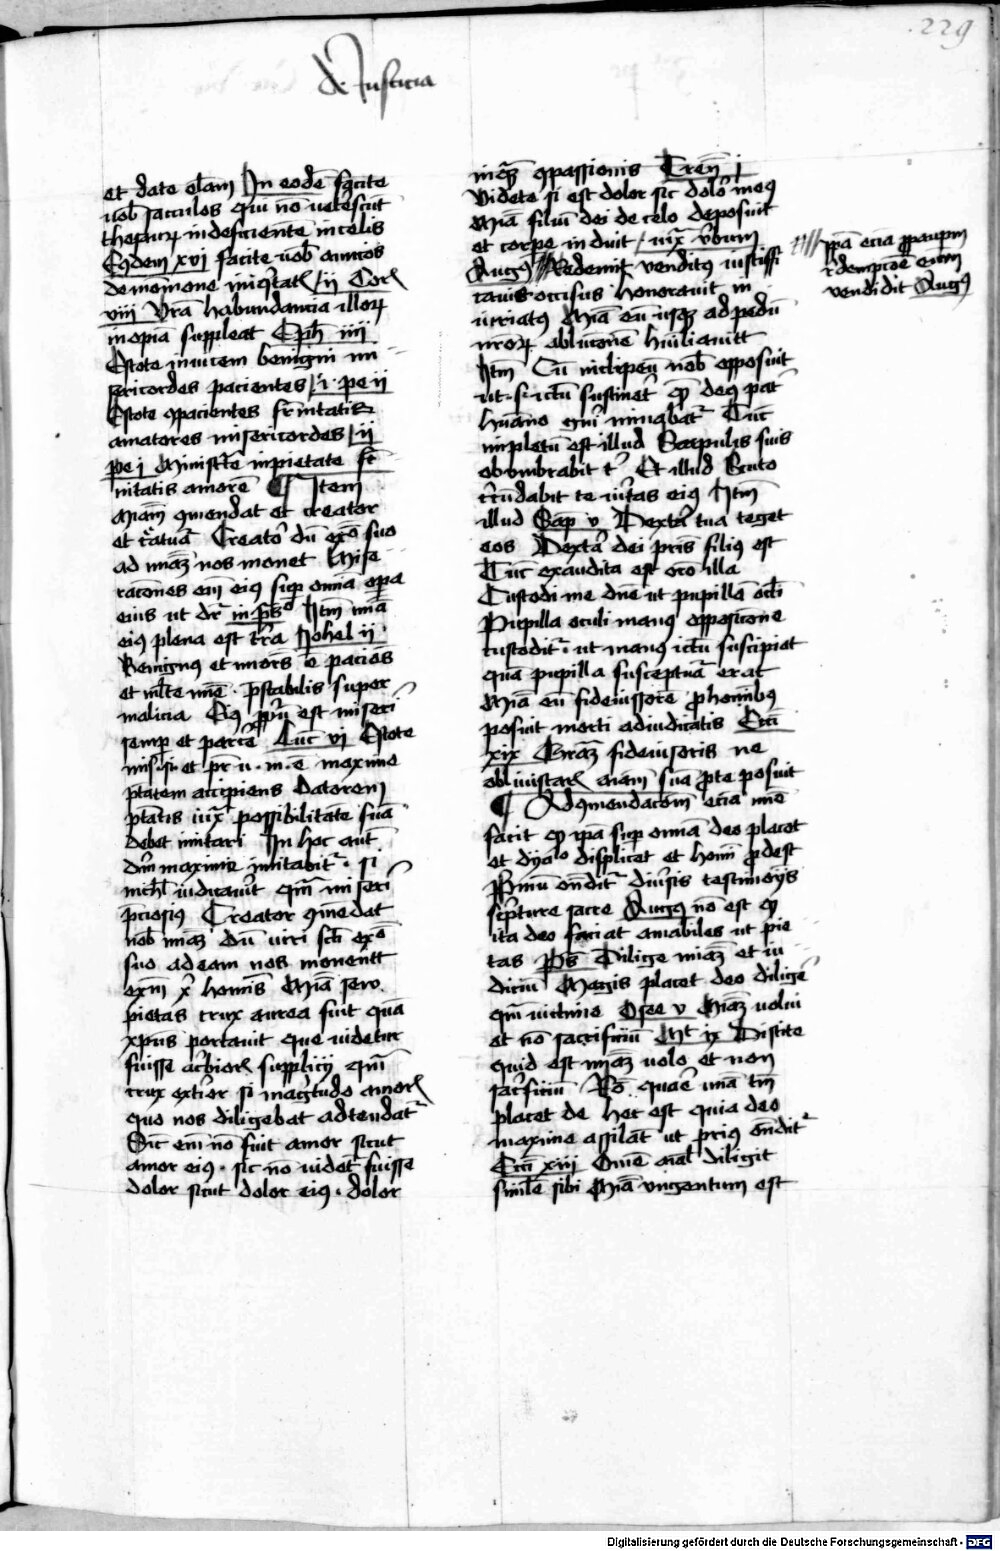 .229
de Iusticia
et date elam In eode facite
vob sacculos qui no veterescut
thesaur indeficiente in celis
Eiusdem xvi facite vob amicos
de momone iniqtat ii Cor
viii Vra habundancia illor
inopia suppleat Eph iiii
Estote inuicem benigni mi
sericordes pacientes i pe ii
Estote opacientes frnitatis
amatores misericordes ii
pe i Ministrate in pietate fr
nitatis amore ¶ Item
Miam omendat et creator
et creatura Creator du exo suo
ad miam nos monet Mise
racones em eius sup omia opa
eius ut dr in ps Itm mia
eius plena est tra Iohel ii
Benignus et miors e paciens
et mlte mie pstabilis super
malicia Eius ppu est miseri
semp et parce Luc vi Estote
mis si et pr u m e maxime
ptatem accipiens Datorem
ptatis iux possibilitate sua
debet imitari In hoc aut
dm maxime imitabitr si
michi iudicauit qm miseri
pciosius Creator omedat
nob miam du viri sci exo
suo ad eam nos monent
exm x homis Mia sero
pietas crux aurea fuit qua
xpus portauit que videtur
fuisse arbior supplicij qm
crux exterior si magtudo amor
quo nos diligebat adtendat
Sic em no fuit amor sicut
amor eius sic no videt fuisse
dolor sicut dolor eius dolor
inqm opassionis Tren i
Videte si est dolor sic dolor meus
Mia filiu dei de celo deposuit
et corpe induit iux vbum
Augus Redemit venditus iustifi
cauit occisus honorauit in
iuriatus Mia eu usq ad pedu
nror ablucione humiliauit
Itm Cu in clipeu nob opposuit
ut sic ictu sustinet q deus pat
humano gni minabat Tuc
impletu est illud Scapulis suis
obumbrabit t Et illud Scuto
circudabit te vitas eius Itm
illud Sap v Dextera tua teget
eos Dextera dei pris filius est
Tuc exaudita est oro illa
Custodi me dne ut pupilla oculi
Pupilla oculi manus opposicione
custodit ut manus ictu suscipiat
qua pupilla susceptura erat
Mia eu fideiussore p hominibus
posuit morti adiudicatis Ecci
xix Graz fideiussoris ne
obliuiscaris aiam sua p te posuit
¶ Ad omendacom ecia mie
facit q ipa sup omia deo placet
et dyabolo displicet et homi pdest
Primu onditr diuersis testimonijs
scripture sacre Augus no est q
ita deo faciat amabiles ut pie
tas Ps Dilige miam et iu
diciu Magis placet deo dilige
qm victime Osee v Miam volui
et no sacrificiu Mt ix Discite
quid est miam volo et non
sacrificiu Ro quare mia tm
placet deo hec est quia deo
maxime assilat ut prius onditr
Ecci xiii Omne aial diligit
simile sibi Mia vngentum est
ipa ecia p paupm
redempcoe eum
vendidit Augus
Digitalisierung gefördert durch die Deutsche Forschungsgemeinschaft - DFG